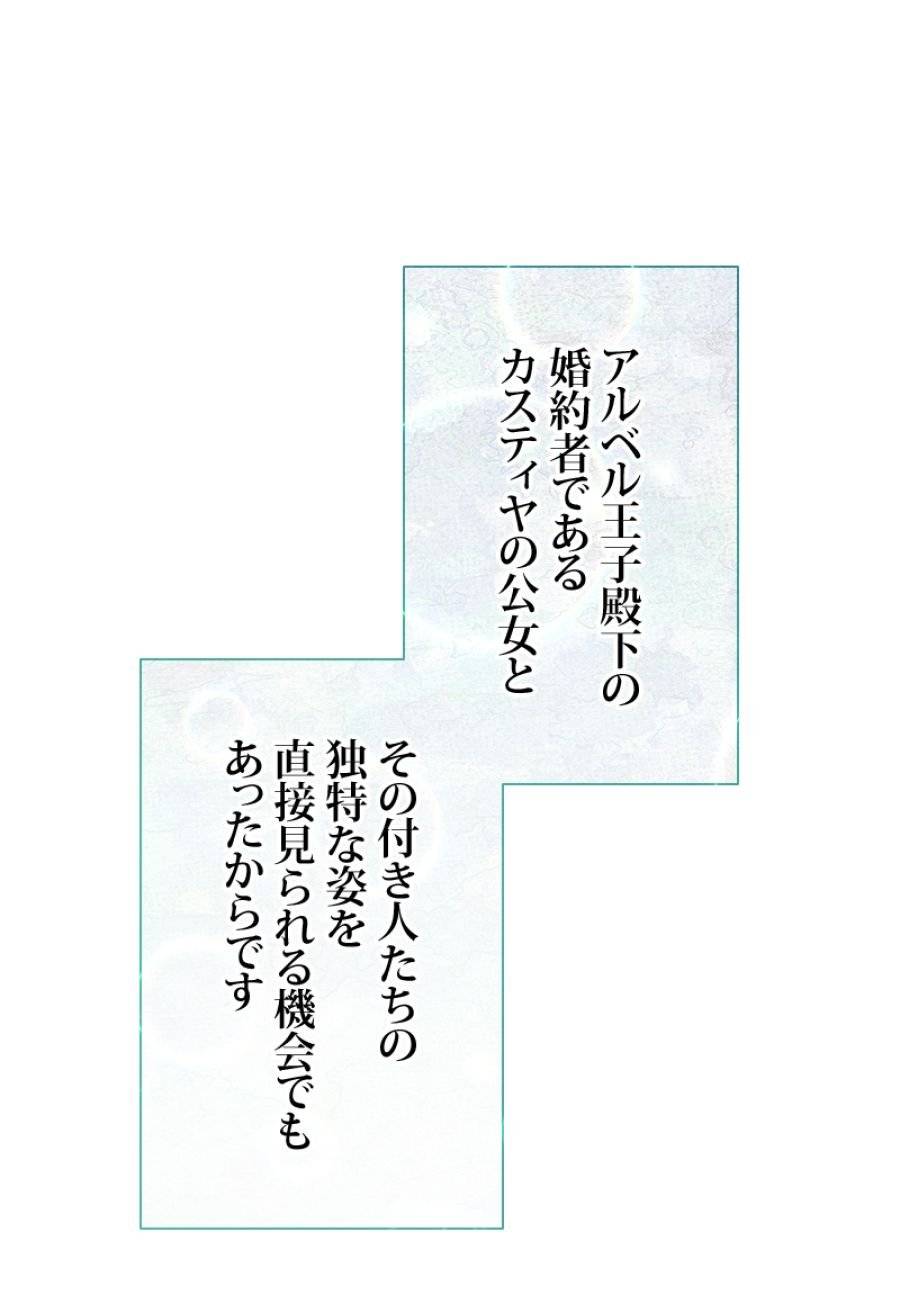 アルベル王子殿下の
婚約者である
カスティヤの公女と
その付き人たちの
独特な姿を
直接見られる機会でも
あったからです